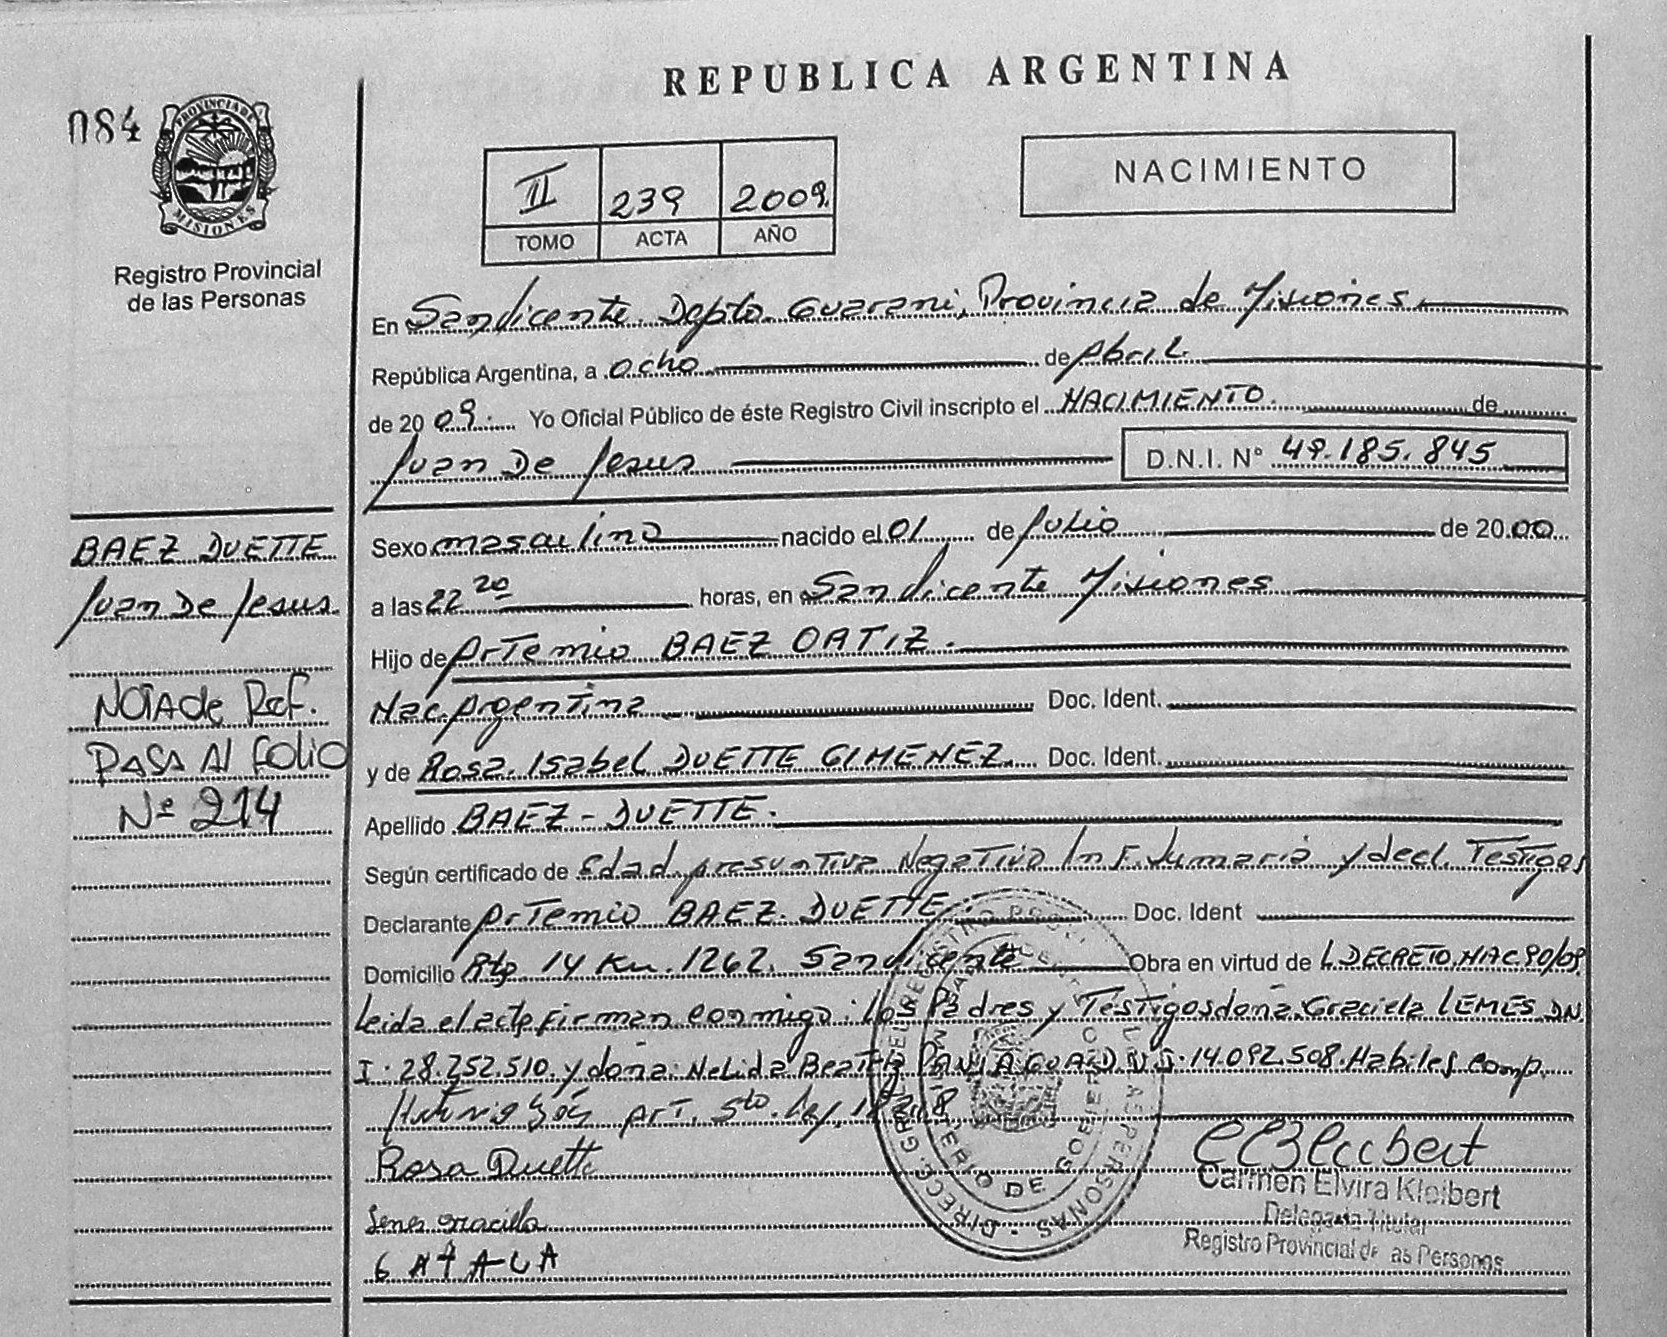 REPUBLICA ARGENTINA
084
PROVINCIA DE
MISIONES
Registro Provincial
de las Personas
II 239 2009.
TOMO ACTA AÑO
NACIMIENTO
En Sanvicente. Depto. Guarani, Provincia de Misiones.
República Argentina, a ocho de Abril.
de 20 09. Yo Oficial Público de éste Registro Civil inscripto el NACIMIENTO. de
Juan De Jesus D.N.I. Nº 49.185.845
BAEZ DUETTE
Juan De Jesus.
NOTA de Ref.
PASA Al folio
Nº 214
Sexo masculino nacido el 01 de Julio de 20 00
a las 22 20 horas, en Sanvicente Misiones
Hijo de Artemio BAEZ ORTIZ.
Nac. Argentina Doc. Ident.
y de Rosa. Isabel DUETTE GIMENEZ. Doc. Ident.
Apellido BAEZ - DUETTE.
Según certificado de Edad. presuntiva Negativo Inf. Sumaria y decl. Testigos
Declarante Artemio BAEZ. DUETTE. Doc. Ident
Domicilio Rta. 14 Km. 1262. Sanvicente Obra en virtud de L. DECRETO. NAC. 90/09
Leida el acta firman conmigo: los Padres y Testigos doña. Graciela LEMES DN.
I: 28.252.510. y doña: Nelida Beatriz PANIAGUA D.N.I. 14.092.508. Habiles comp.
Art. 5to. Ley. 18248
Rosa Duette
Carmen Elvira Kleibert
Delegada Titular
Registro Provincial de las Personas